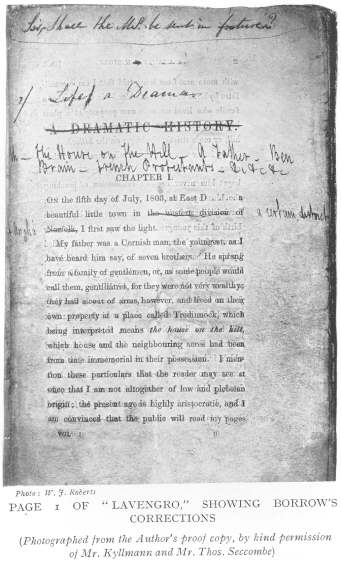 Sir, Shall the MS. be sent in future?
Life, a Drama
A DRAMATIC HISTORY.
The House on the Hill – A Father – Ben
Brain – French Protestants – &c &c
CHAPTER I.
ON the fifth day of July, 1803, at East D
beautiful little town in the western division of
a certain district
Norfolk, I first saw the light.
My father was a Cornish man, the youngest, as I
have heard him say, of seven brothers. He sprang
from a family of gentlemen, or, as some people would
call them, gentillâtres, for they were not very wealthy;
they had a coat of arms, however, and lived on their
own property at a place called Tredinnock, which
being interpreted means the house on the hill,
which house and the neighbouring acres had been
from time immemorial in their possession. I men-
tion these particulars that the reader may see at
once that I am not altogether of low and plebeian
origin; the present age is highly aristocratic, and I
am convinced that the public will read my pages
VOL. I
B
Photo: W. J. Roberts
PAGE 1 OF "LAVENGRO," SHOWING BORROW'S
CORRECTIONS
(Photographed from the Author's proof copy, by kind permission
of Mr. Kyllmann and Mr. Thos. Seccombe)